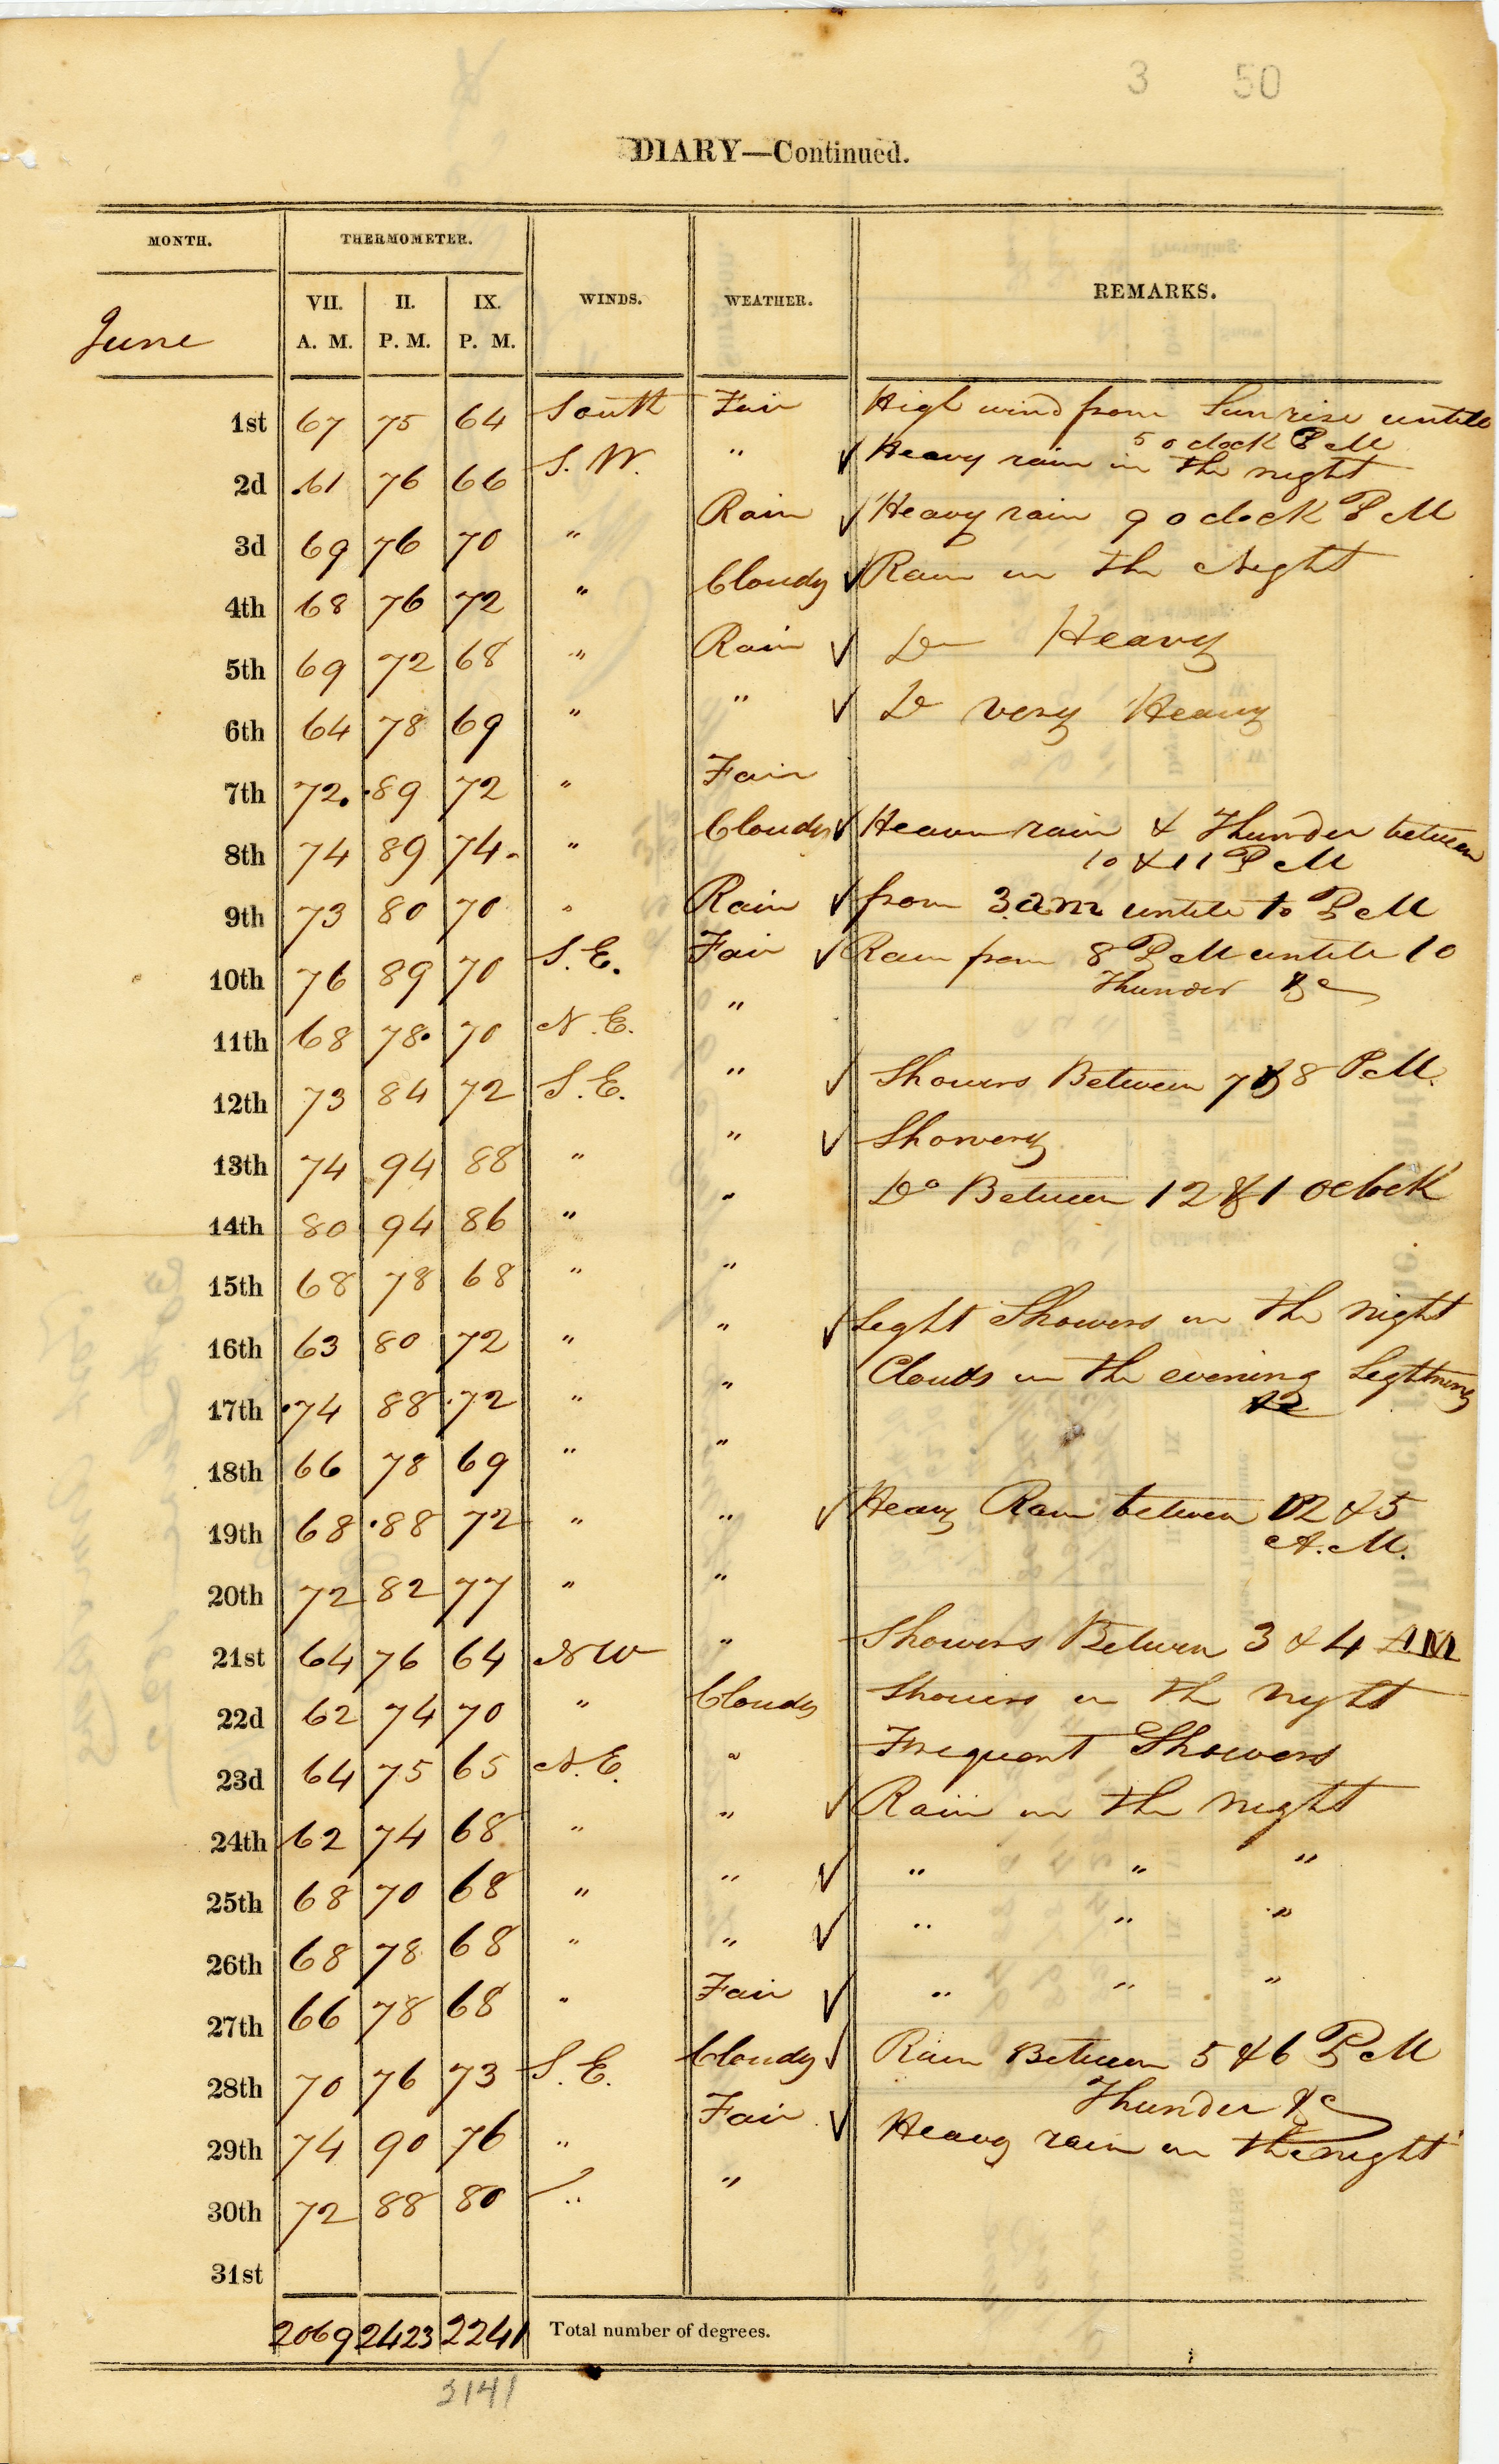 3 50
DIARY—Continued.
MONTH. THERMOMETER. WINDS. WEATHER. REMARKS.
VII. II. IX.
June A. M. P. M. P. M.
1st 67 75 64 South Fair High wind from Sun rise untill
5 o clock P M
2d 61 76 66 S. W. " ✓ Heavy rain in the night
3d 69 76 70 " Rain ✓ Heavy rain 9 o clock P M
4th 68 76 72 " Cloudy ✓ Rain in the Night
5th 69 72 68 " Rain ✓ Do Heavy
6th 64 78 69 " " ✓ Do very Heavy
7th 72 89 72 " Fair
8th 74 89 74 " Cloudy ✓ Heavy rain & Thunder between
10 & 11 P M
9th 73 80 70 " Rain ✓ from 3 am untill 10 P M
10th 76 89 70 S. E. Fair ✓ Rain from 8 P M untill 10
Thunder &c
11th 68 78 70 N. E. "
12th 73 84 72 S. E. " ✓ Showers Between 7 & 8 P M.
13th 74 94 88 " " ✓ Showery
14th 80 94 86 " " Do Between 12 & 1 oclock
15th 68 78 68 " "
16th 63 80 72 " " ✓ Light Showers in the night
17th 74 88 72 " " Clouds in the evening Lightning
&c
18th 66 78 69 " "
19th 68 88 72 " " ✓ Heavy Rain between 12 & 5
A. M.
20th 72 82 77 " "
21st 64 76 64 N W " Showers Between 3 & 4 AM
22d 62 74 70 " Cloudy Showers in the night
23d 64 75 65 N. E. " Frequent Showers
24th 62 74 68 " " ✓ Rain in the night
25th 68 70 68 " " ✓ " " "
26th 68 78 68 " " ✓ " " "
27th 66 78 68 " Fair ✓ " " "
28th 70 76 73 S. E. Cloudy ✓ Rain Between 5 & 6 P M
Thunder &c
29th 74 90 76 " Fair ✓ Heavy rain in the night
30th 72 88 80 " "
31st
2069 2423 2241 Total number of degrees.
2141